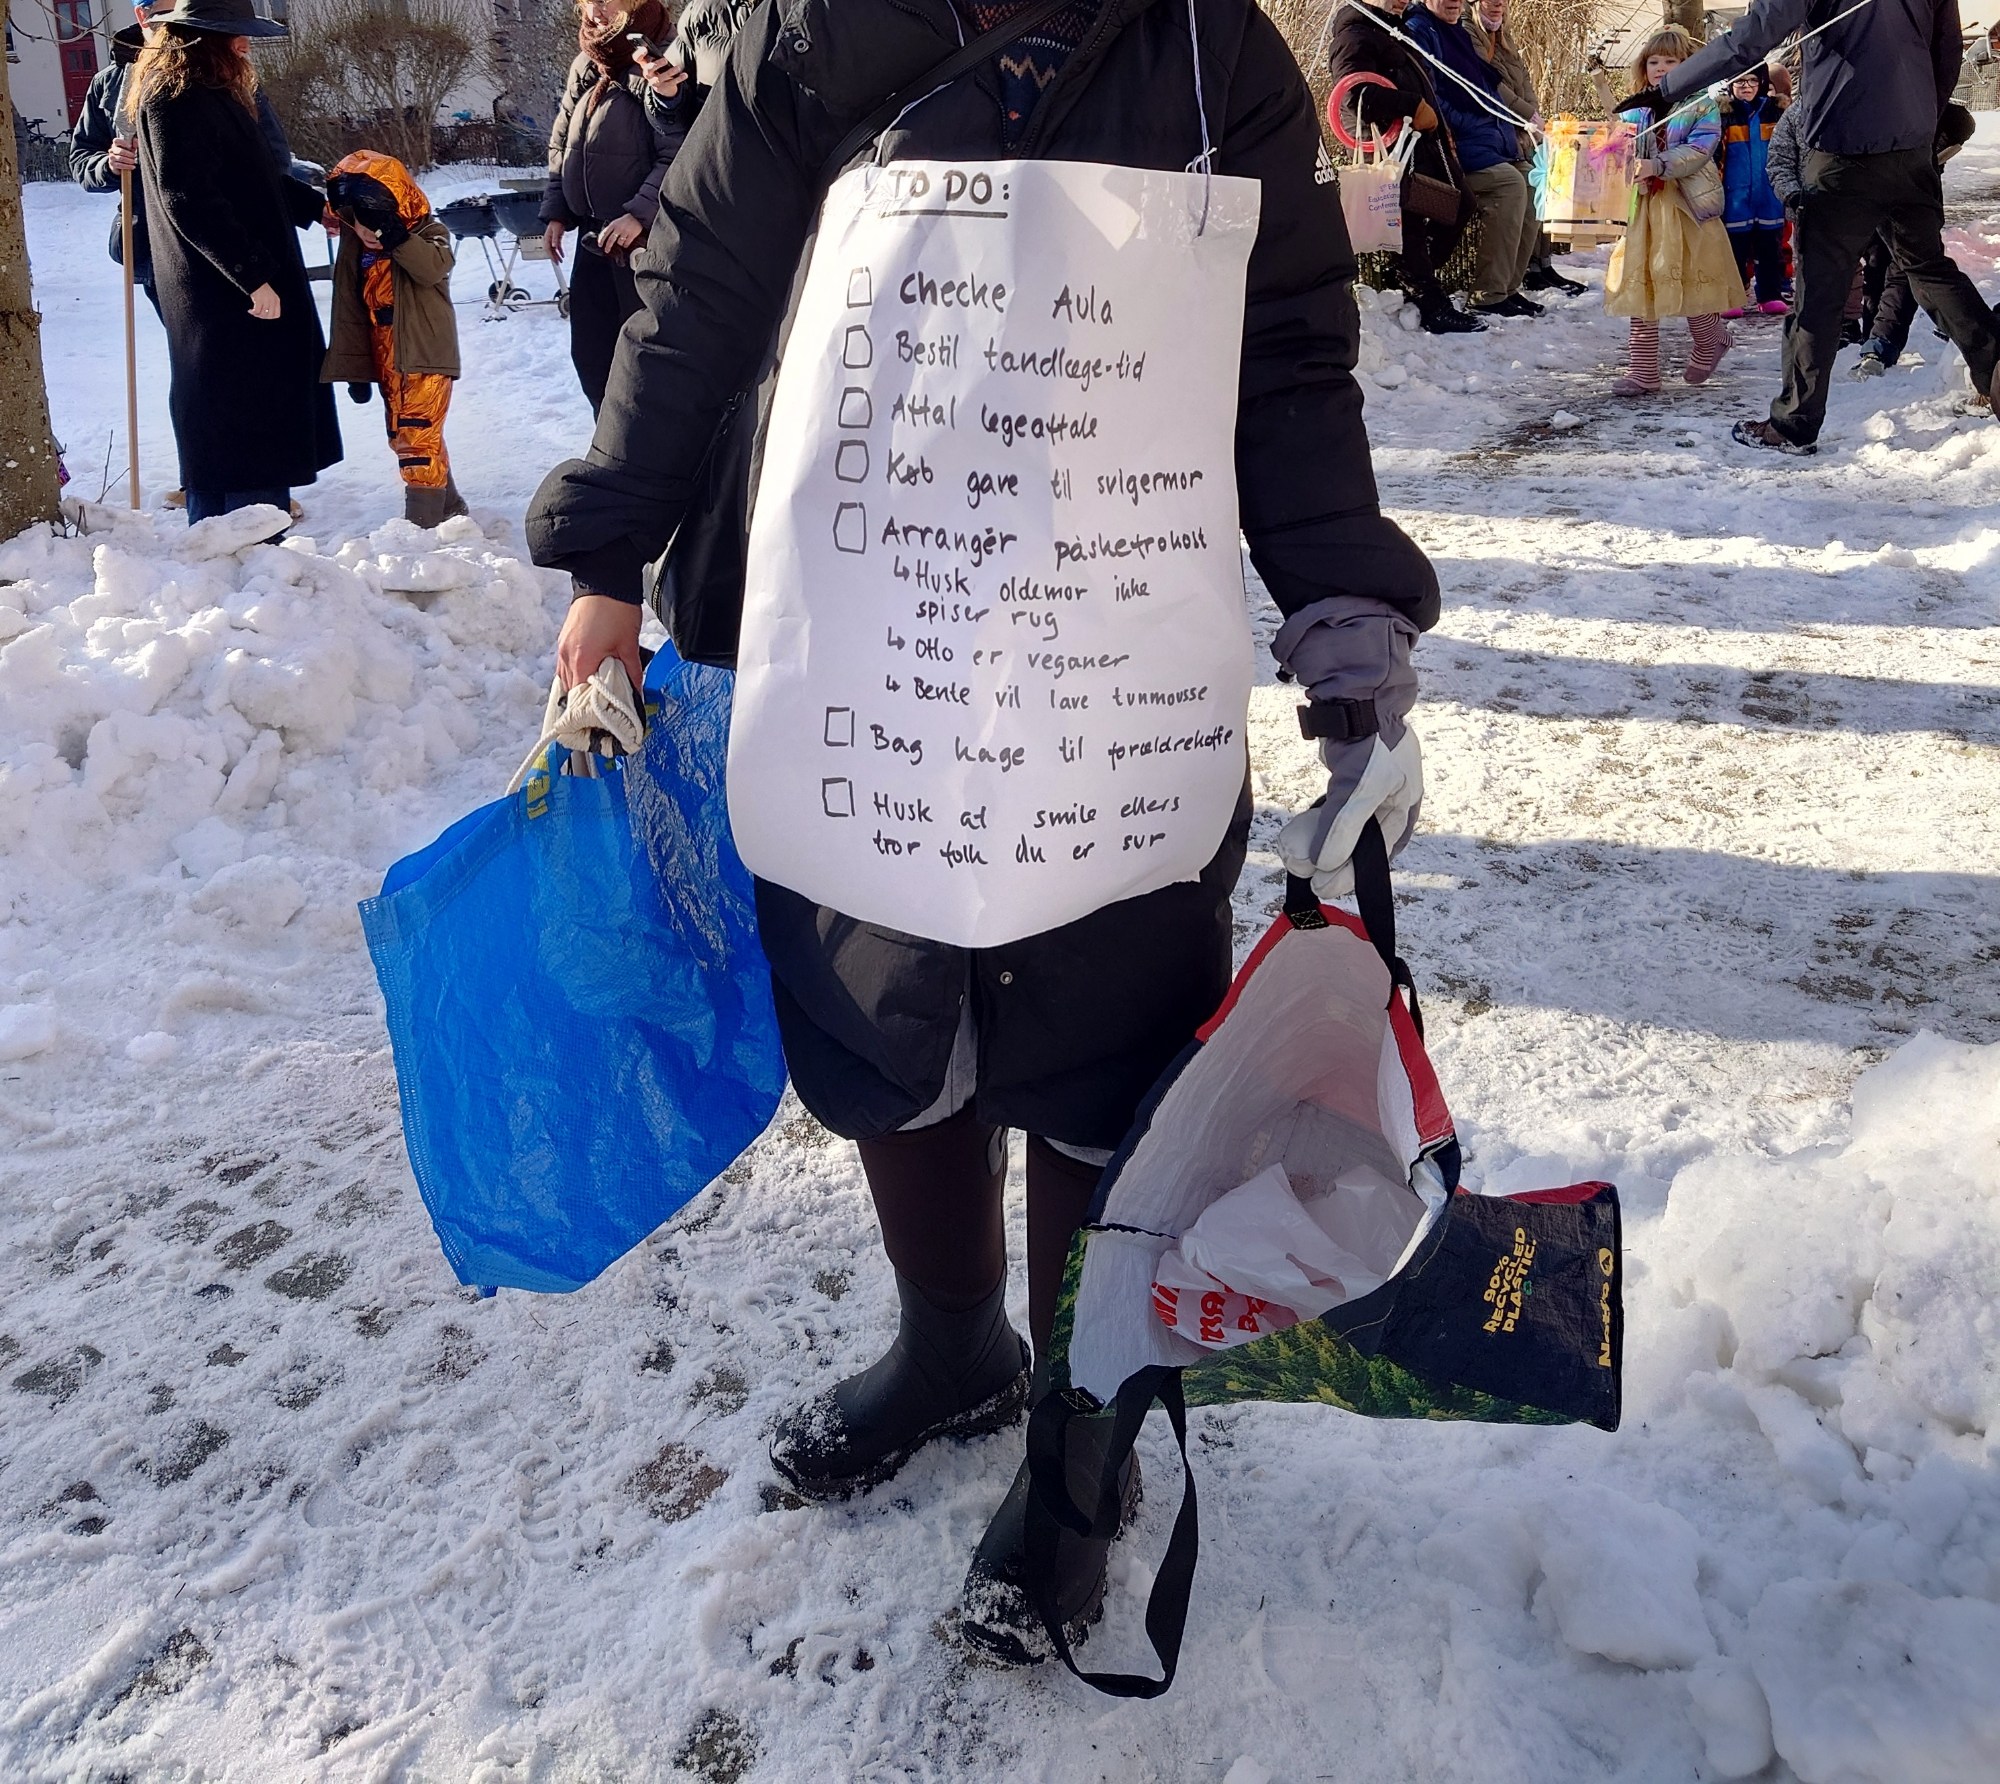 TO DO:
Checke Aula
Bestil tandlæge-tid
Aftal legeaftale
Køb gave til svigermor
Arrangér påskefrokost
↳ Husk oldemor ikke
spiser rug
↳ Otto er veganer
↳ Bente vil lave tunmousse
Bag kage til forældrekaffe
Husk at smile ellers
tror folk du er sur
adidas
90%
RECYCLED
PLASTIC.
Netto